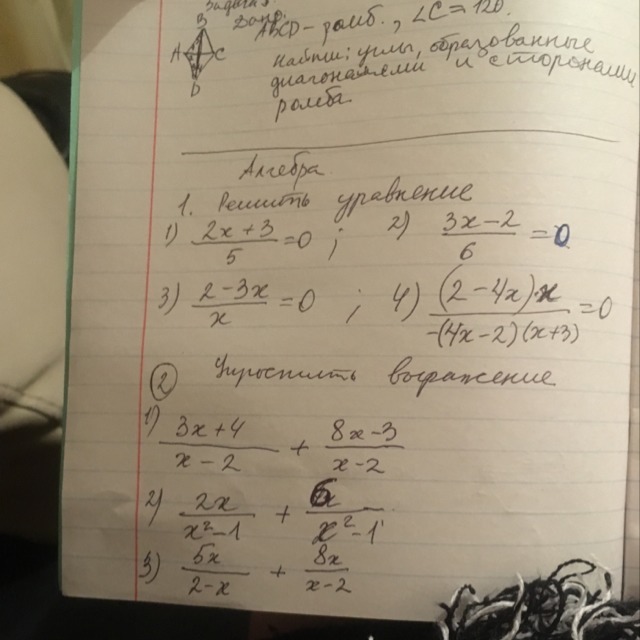 Задача.
Дано: ABCD - ромб., ∠C = 120.
найти: углы, образованные
диагоналями и сторонами
ромба.
B
A C
D
Алгебра.
1. Решить уравнение
1) (2x+3)/5 = 0 ; 2) (3x-2)/6 = 0
3) (2-3x)/x = 0 ; 4) ((2-4x)x)/(-(4x-2)(x+3)) = 0
2 Упростить выражение
1) (3x+4)/(x-2) + (8x-3)/(x-2)
2) 2x/(x²-1) + 6/(x²-1)
3) 5x/(2-x) + 8x/(x-2)